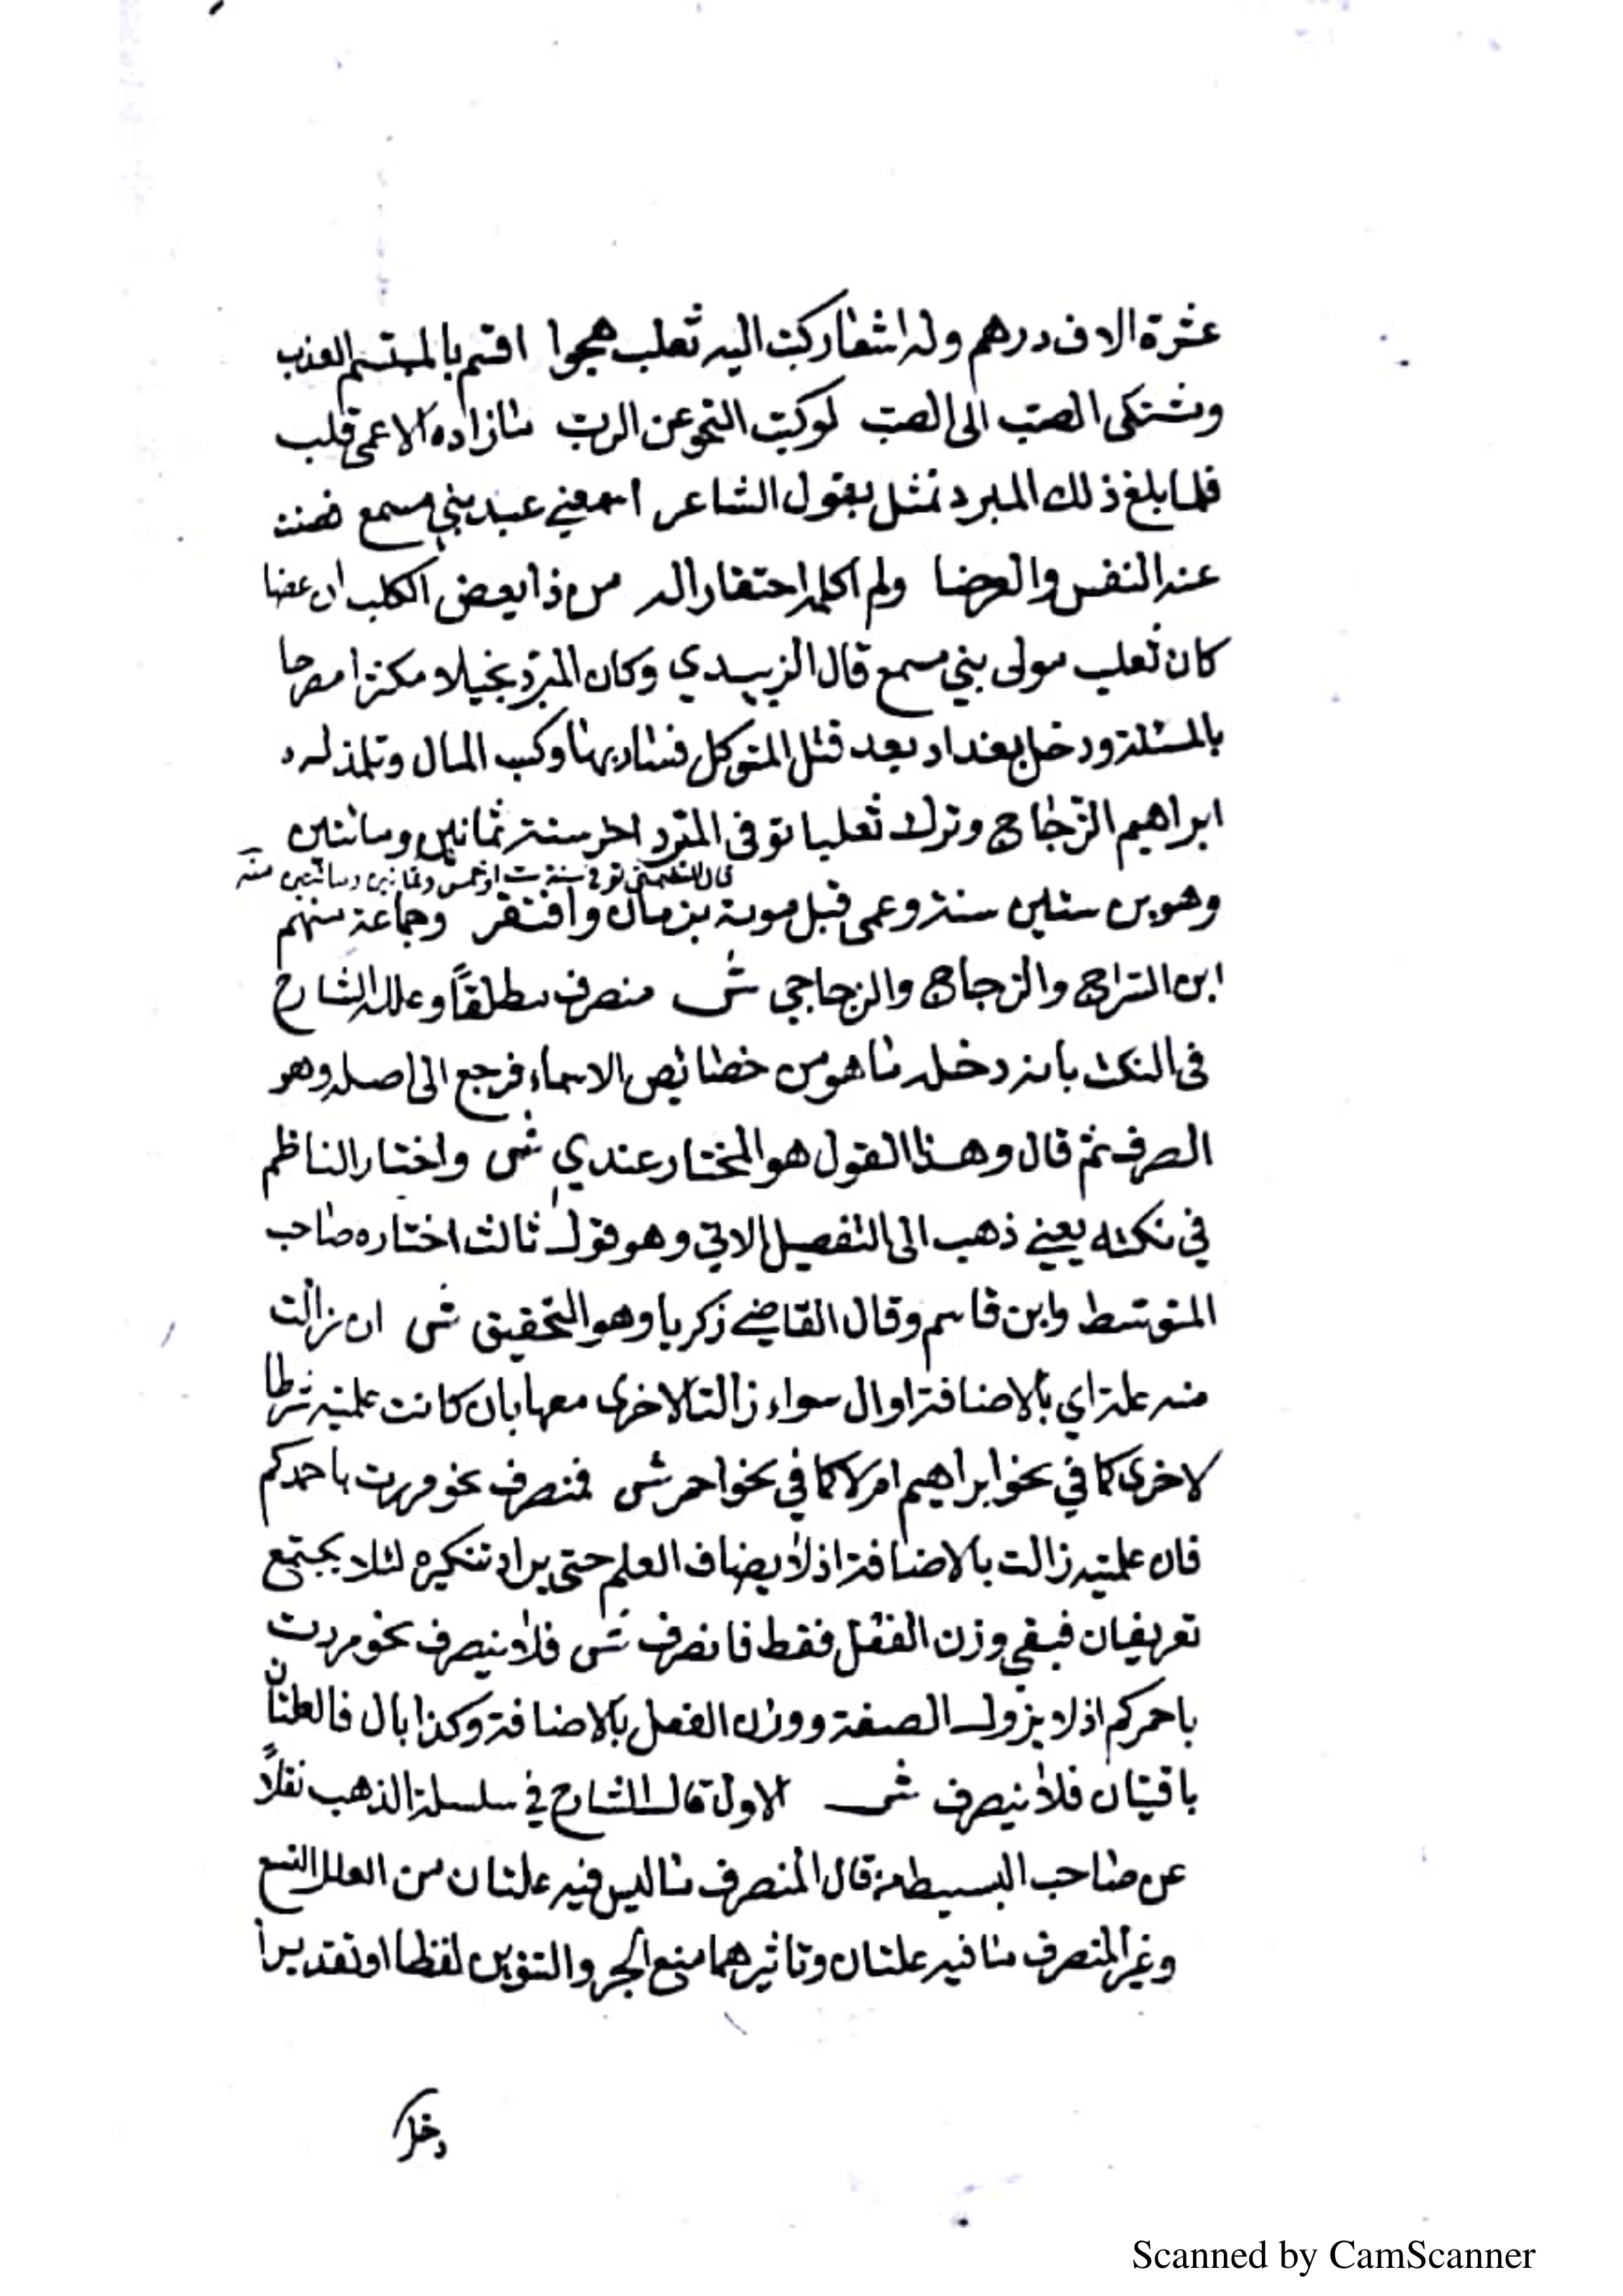 عشرة الاف درهم وله اشعار كتب اليه ثعلب هجوا اقسم بالمبتسم العذب
وشتكى الصب الى الصب لو كتب النحو عن الرب ما زاده الا عمى قلب
فلما بلغ ذلك المبرد تمثل بقول الشاعر اسمعني عبد بني مسمع فصنت
عنه النفس والعرضا ولم اكلمه احتقارا له من ذا يعض الكلب ان عضا
كان ثعلب مولى بني مسمع قال الزبيدي وكان المبرد بخيلا مكثرا مصرحا
بالمسئلة ودخل بغداد بعد قتل المتوكل فساد بها وكسب المال وتلمذ له
ابراهيم الزجاج وترك ثعلبا توفى المبرد اخر سنة ثمانين ومائتين
قال الشمني توفي سنة ست او خمس وثمانين ومائتين منه
وهو بن ستين سنة وعمى قبل موته بزمان وافتقر وجماعة منهم
ابن السراج والزجاج والزجاجي ش منصرف مطلقاً وعلله الشارح
فى النكت بانه دخله ما هو من خصائص الاسماء فرجع الى اصله وهو
الصرف ثم قال وهذا القول هو المختار عندي ش واختار الناظم
في نكته يعني ذهب الى التفصيل الاتي وهو قول ثالث اختاره صاحب
المتوسط وابن قاسم وقال القاضي زكريا وهو التحقيق ش ان زالت
منه علة اي بالاضافة او ال سواء زالت الاخرى معها بان كانت علميته شرطا
لاخرى كما في نحو ابراهيم ام لا كما في نحو احمر ش فمنصرف نحو مررت باحمدكم
فان علميته زالت بالاضافة اذ لا يضاف العلم حتى يراد تنكيره لئلا يجتمع
تعريفان فبقي وزن الفعل فقط فانصرف ش فلا ينصرف نحو مررت
باحمركم اذ لا يزول الصفة ووزن الفعل بالاضافة وكذا بال فالعلتان
باقيتان فلا ينصرف ش الاول قال الشارح في سلسلة الذهب نقلاً
عن صاحب البسيط قال المنصرف ما ليس فيه علتان من العلل التسع
وغير المنصرف ما فيه علتان وتاثيرهما منع الجر والتنوين لفظا او تقديرا